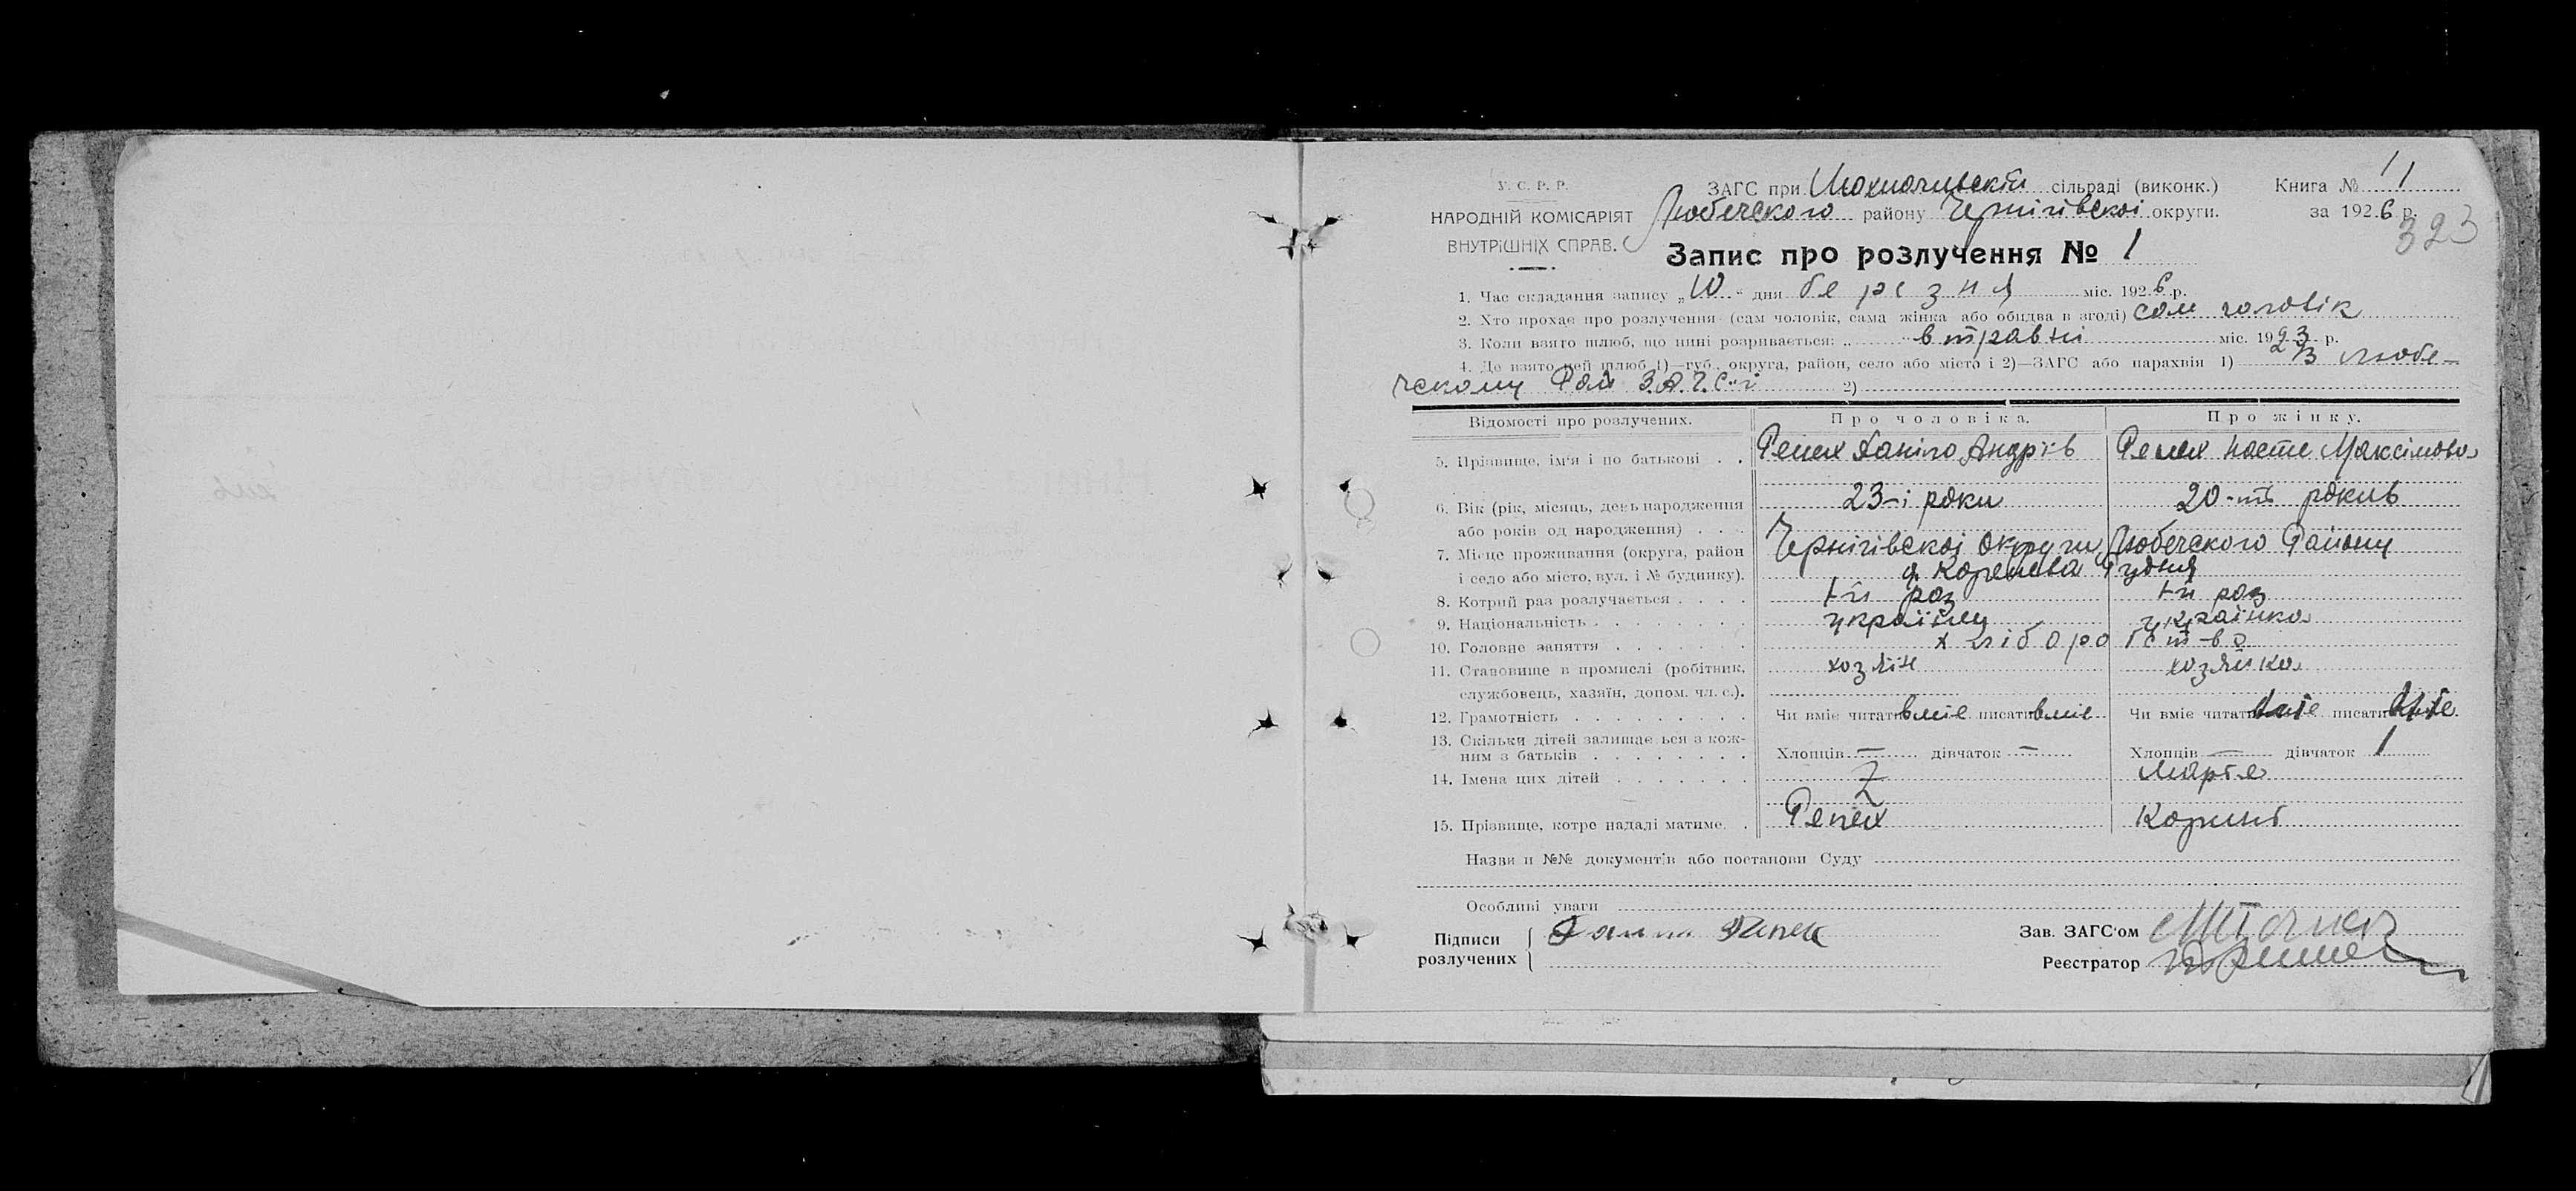 У. С. Р. Р.
НАРОДНІЙ КОМІСАРІЯТ
ВНУТРІШНІХ СПРАВ.
ЗАГС при сільраді (виконк.)
Любечского району Чернігівскоі округи.
Книга № 11
за 1926 р.
323
Запис про розлучення № 1
1. Час складання запису „10" дня березня міс. 1926 р.
2. Хто прохає про розлучення (сам чоловік, сама жінка або обидва в згоді) сам чоловік
3. Коли взято шлюб, що нині розривається: „ " в травні міс. 1923 р.
4. Де взято цей шлюб 1)—губ., округа, район, село або місто і 2)—ЗАГС або парахвія 1) В Любе-
чскому Рай З.А.Г.С-і 2)
Відомості про розлучених. Про чоловіка. Про жінку.
5. Прізвище, ім'я і по батькові . . Репех Даніло Андріїв Репех Настя Максімова
6. Вік (рік, місяць, день народження 23-і роки 20-ть років
або років од народження) . . .
7. Місце проживання (округа, район Чернігівскоі Округи Любечского Району
і село або місто, вул. і № будинку). д. Коренева Рудня
8. Котрий раз розлучається . . . . 1-й раз 1-й раз
9. Національність . . . . . . . українец українка
10. Головне заняття . . . . . . . хліборобство
11. Становище в промислі (робітник, хозяїн хозяйка
службовець, хазяїн, допом. чл. с.).
12. Грамотність . . . . . . . . . Чи вміє читати вміє писати вміє Чи вміє читати писати
13. Скільки дітей залишається з кож-
ним з батьків . . . . . . . . Хлопців — дівчаток — Хлопців — дівчаток 1
14. Імена цих дітей . . . . . . . Марія
15. Прізвище, котре надалі матиме. . Репех
Назви и №№ документів або постанови Суду
Особливі уваги
Підписи
розлучених
Зав. ЗАГС'ом
Реєстратор